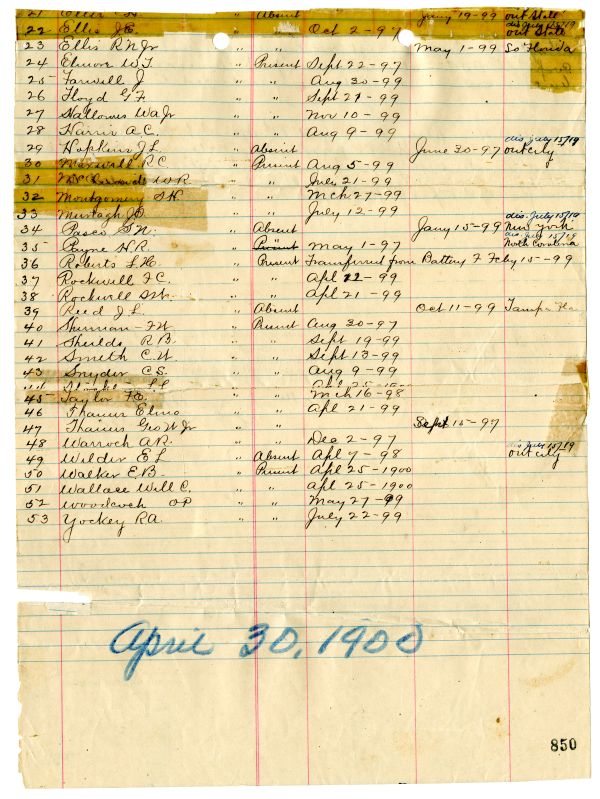 21 Absent Jany 19-99 out State
22 Ellis J E " " Oct 2-97 dis July 15/19 out State
23 Ellis R N Jr " " May 1-99 So Florida
24 Elmore W T " Present Sept 22-97
25 Farwell J " " Aug 30-99
26 Floyd G F " " Sept 29-99
27 Hallowes Wa Jr " " Nov 10-99
28 Harris A C. " " Aug 9-99
29 Hopkins J L " Absent June 30-97 dis July 15/19 out city
30 Maxwell R C " Present Aug 5-99
31 W R. " " July 21-99
32 Montgomery S H. " " Mch 27-99
33 Murtagh J D " " July 12-99
34 Pasco S N. " Absent Jany 15-99 dis. July 15/19 New York
35 Payne H R. " Present May 1-97 dis. July 15/19 North Carolina
36 Roberts L H. " Present Transferred from Battery F Feby 15-99
37 Rockwell F C. " " Apl 22-99
38 Rockwell " " Apl 21-99
39 Reed J L. " Absent Oct 11-99 Tampa Fla
40 " Present Aug 30-97
41 Shields R B. " " Sept 19-99
42 Smith C W " " Sept 13-99
43 Snyder C S. " " Aug 9-99
Apl 25-1900
45 Taylor F C. " " Mch 16-98
46 Thames Elmo " " Apl 21-99
47 Thames Geo W Jr " " Sept 15-97
48 Warrock A R. " " Dec 2-97
49 Wilder E L " Absent Apl 7-98 dis July 15/19 out city
50 Walker E B. " Present Apl 25-1900
51 Wallace Will C. " " Apl 25-1900
52 Woodcock O P " " May 27-99
53 Yockey R A. " " July 22-99
April 30, 1900
850